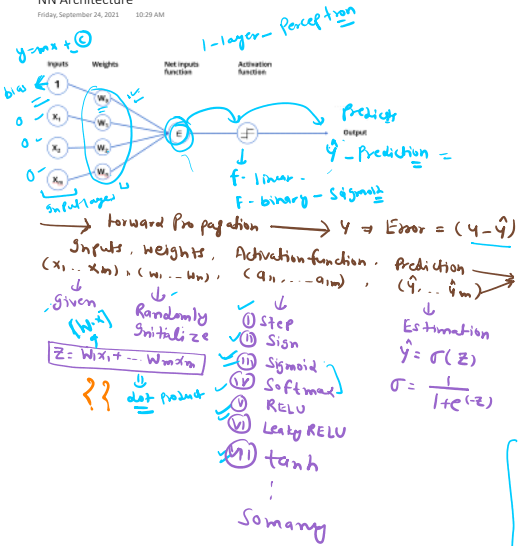 NN Architecture
Friday, September 24, 2021 10:29 AM
1-layer-Perceptron
y=mx+c
Inputs Weights Net inputs function Activation function
bias 1 W₀
0 X₁ W₁ Predicts
E Output
0 X₂ W₂ ŷ - Prediction =
0 Xm Wm f - linear -
Input layer F - binary - Sigmoid
Forward Propagation → y → Error = (y-ŷ)
Inputs, weights, Activation function, Prediction
(x₁ .. xm), (w₁ .. wm), (a₁, ... a₁m), (ŷ, ... ŷm)
given Randomly Initialize
(W.x)
Z = W₁x₁ + ... Wmxm
{ } dot product
i Step
ii Sign
iii Sigmoid
iv Softmax
v RELU
vi Leaky RELU
vii tanh
So many
Estimation
ŷ = σ(z)
σ = 1 / 1+e^(-z)